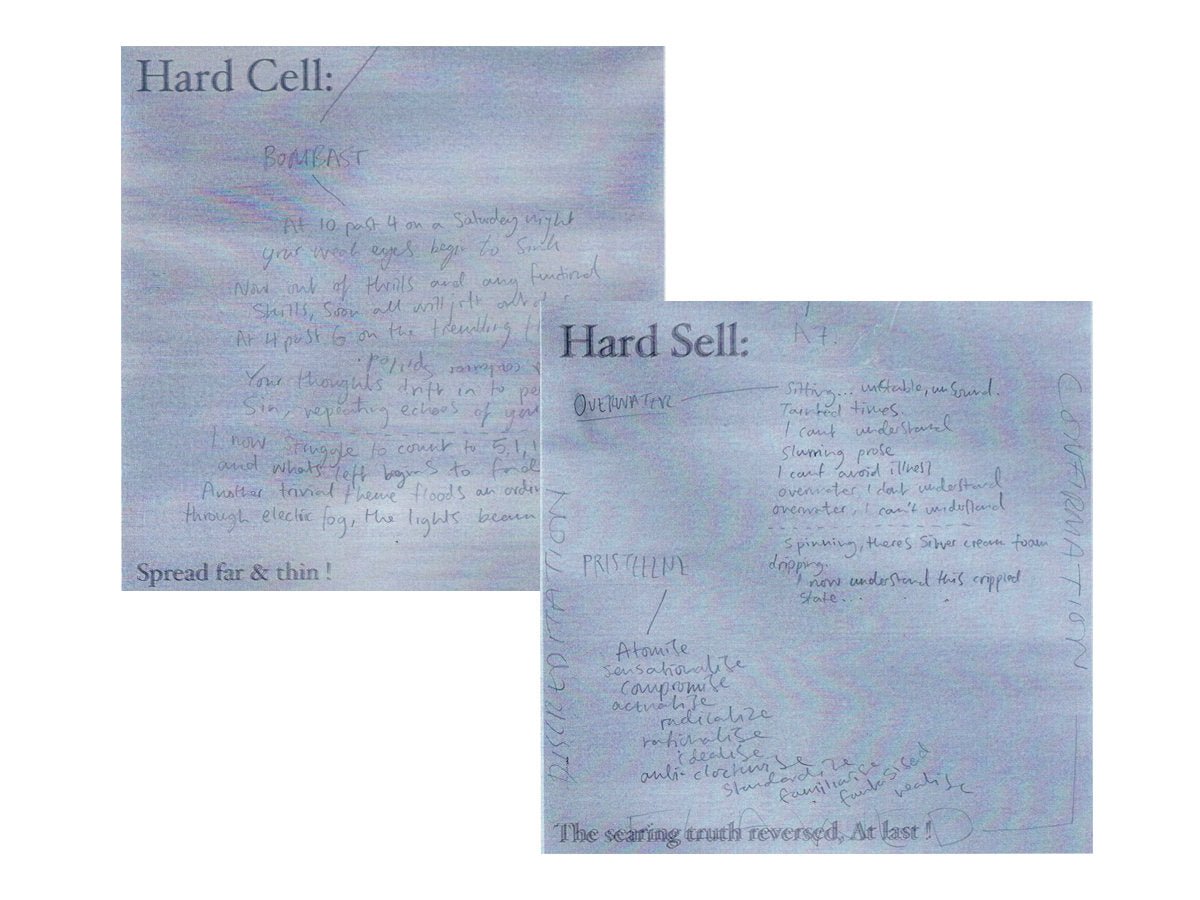 Hard Cell:
BOMBAST
At 10 past 4 on a Saturday night
your weak eyes begin to sink
Now out of thrills and any functional
skills, soon all will jolt out of
At 4 past 6 on the trembling
Your thoughts drift in to
Sin, repeating echoes of your
I now struggle to count to 5, 1, 1
and whats left begins to
Another trivial theme floods an
through electric fog, the lights
Spread far & thin !
Hard Sell:
A 7.
OVERWATER
Sitting... unstable, unsound.
Tainted times
I cant understand
Slurring prose
I cant avoid illness
overwater, I dont understand
overwater, I can't understand
Spinning, theres Silver cream foam
dripping.
I now understand this crippled
state...
CONFIRMATION
PRISTEENE
Atomise
sensationalise
compromise
actualise
radicalize
rationalise
idealise
anti-clockwise
standardize
familiarise
fantasised
realise
The searing truth reversed, At last !